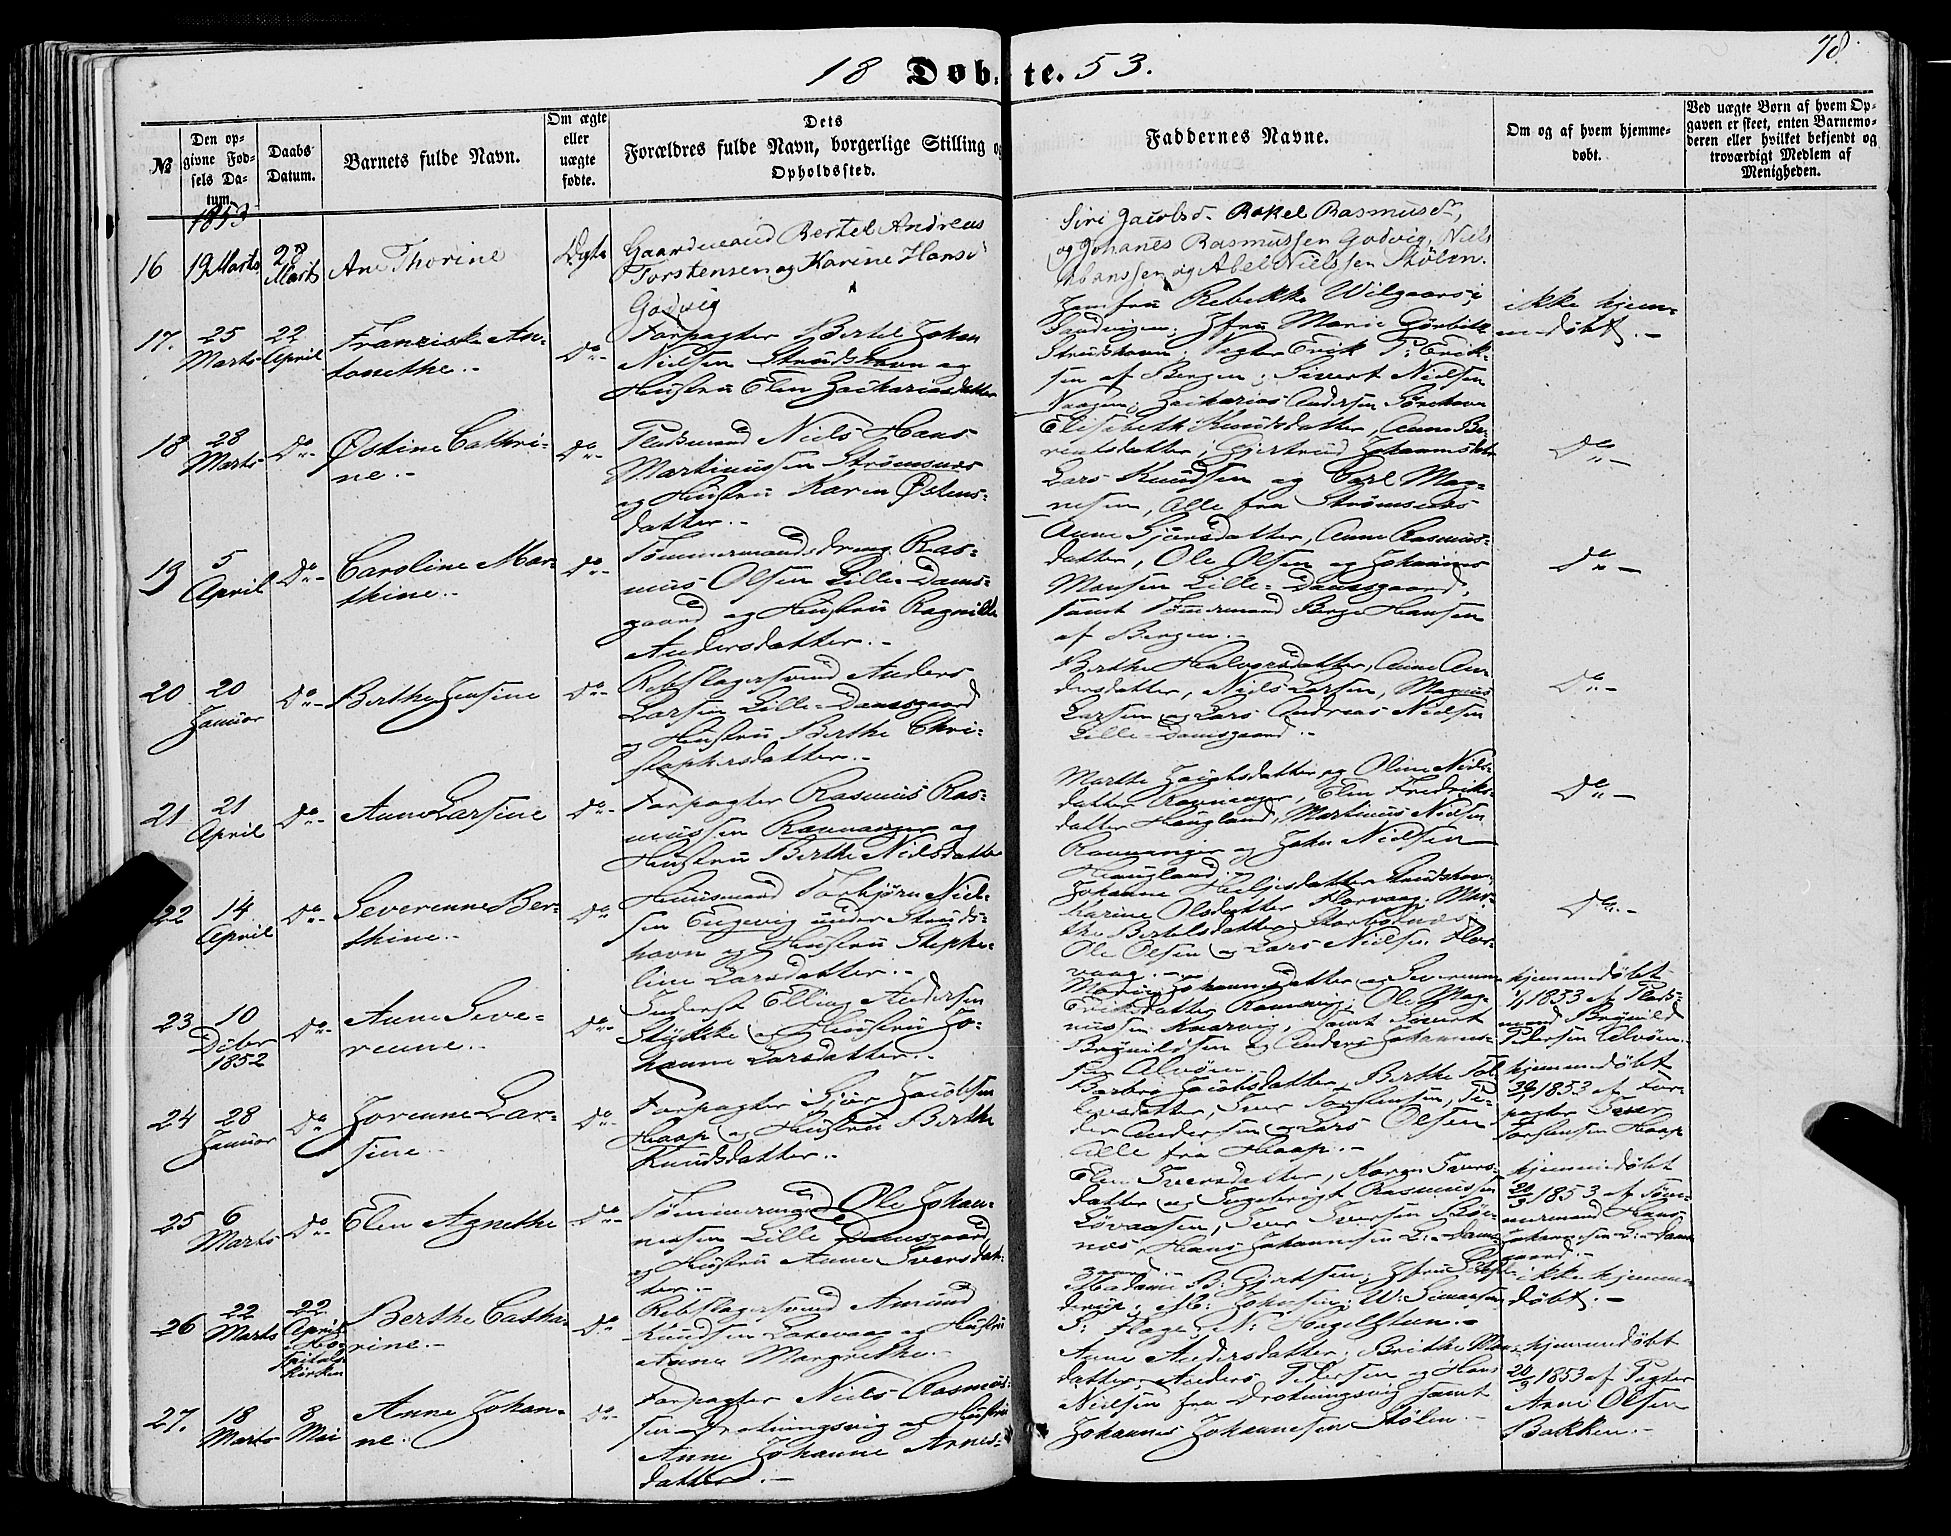 78.
18 Døbte. 53.
№
Den opgivne Fødsels Datum.
Daabs Datum.
Barnets fulde Navn.
Om ægte eller uægte fødte.
Dets Forældres fulde Navn, borgerlige Stilling og Opholdssted.
Faddernes Navne.
Om og af hvem hjemmedøbt.
Ved uægte Børn af hvem Opgaven er skeet, enten Barnemoderen eller hvilket bekjendt og troværdigt Medlem af Menigheden.
1853
16
19 Marts
28 Marts
Ane Thorine
Ægte
Gaardmand Bertel Andreas
Torstensen og Karine Hansd
Godvig
Siri Jacobsd. Rakel Rasmusdr,
og Johanes Rasmussen Godvig, Niels
og Abel Nielssen Stølen.
17.
25 Marts
22 April
Franziske An-
tonethe.-
Do-
Forpagter Bertel Johan
Nielsen Strudshavn og
Hustru Elen Zachariasdatter
Jomfru Rebekke Wilgaars
Sandvigen; Jfru Marie
Strudshavn; Erik P: Erik-
sen af Bergen; Sivert Nielsen
Vaagen; Zacharias Andersen
ikke hjem-
medøbt.-
18
28 Marts
Do-
Østine Cathri-
ne.-
Do-
Pladsmand Niels Hans
Martinussen Strømsnæs
og Hustru Karen Østens-
datter.-
Elisebeth Knudsdatter, Anne Be-
rentsdatter; Gjertrud Johannisdtr
Lars Knudsen og Carl Mag-
nesen, Alle fra Strømsnæs
Do-
19
5 April
Do-
Caroline Mar-
thine.-
Do-
Tømmermandsdreng Ras-
mus Olsen Lille-Dams-
gaard og Hustru Ragnilde
Andersdatter.-
Anne Sjursdatter, Anne Rasmus-
datter, Ole Olsen og Johannes
Monsen Lille-Damsgaard,
samt Tømermand Berge Hansen
af Bergen.-
Do-
20
20 Januar
Do-
Berthe Jensine
Do-
Rebslagersvend Anders
Larsen Lille-Damsgaard
og Hustru Berthe Chri-
stophersdatter.-
Berthe Halvorsdatter, Anne An-
dersdatter, Niels Larsen, Magnus
Larsen og Lars Andreas Nielsen
Lille-Damsgaard.-
Do-
21
21 April
Do-
Anne Larsine
Do-
Forpagter Rasmus Ras-
mussen Ravnanger og
Hustru Berthe Nielsdatter
Marthe Jacobsdatter og Oline Niels-
datter Ravnanger, Elen Fredriks-
datter Haugland, Martinus Nielsen
Ravnanger og John Nielsen
Haugland.
Do-
22
14 April
Do-
Severenne Ber-
thine.-
Do
Huusmand Torbjørn Niel-
sen Eugevig under Struds-
havn og Hustru Stephe-
line Larsdatter.-
Johanne Heljesdatter Strudshavn,
Karine Olsdatter Florvaag; Mar-
the Bertelsdatter Storbotnæs,
Ole Olsen og Lars Nielsen Flor-
vaag.-
Do.-
23
10 Dcbr 1852
Do-
Anne Seve-
renne.-
Do-
Inderst Elling Andersen
Stykke og Hustru Jo-
hanne Larsdatter.-
Marie Johannesdatter og Severenne
Eriksdatter Ramsvig; Ole Mag-
nussen Knarvig, samt Sivert
Brynildsen og Anders Johannes-
sen Alvøen
hjemmedøbt
1/1 1853 af Plads-
mand Brynild
Pedersen Alvøen.
24
28 Januar
Do
Jorenne Lar-
sine.-
Do-
Forpagter Sjur Jacobsen
Haap og Hustru Berthe
Knudsdatter.-
Barbro Jacobsdatter, Berthe Tol-
levsdatter, Iver Torstensen, Pe-
der Andersen og Lars Olsen
Alle fra Haap.-
hjemmedøbt
30/1 1853 af For-
pagter Iver
Torstensen Haap
25
6 Marts
Do-
Elen Agnethe
Do-
Tømmermand Ole Johan-
nesen Lille Damsgaard
og Hustru Anne Iversdat-
ter.-
Elen Iversdatter, Karen Ivers-
datter og Ingebrigt Rasmussen
Løvaasen, Iver Iversen Bøe-
næs, Hans Johannesen L:-Dams-
gaard.-
hjemmedøbt
20/3 1853 af Tøm-
mermand Hans
Johannesen L:-Dams
gaard.-
26
22 Marts
22 April i Hospitalskirken
Berthe Catha-
rine.-
Do
Rebslagersvend Amund
Knudsen Laxevaag og Hustru
Anne Margrethe.-
Madame B: Gjertsen; Jfru
M: Johnsen; W: Simonsen
S: Flage; N: Hegelstun.-
ikke hjemme-
døbt.-
27.
18 Marts
8 Mai
Anne Johan-
ne.
Do-
Forpagter Niels Rasmus-
sen Drotningsvig og Hustru
Anne Johanne Arnes-
datter.-
Anne Andersdatter; Brithe
datter, Anders Pedersen og Hans
Nielsen fra Drotningsvig samt
Johannes Johannesen Stølen.-
hjemmedøbt
20/3 1853 af Pagter
Arni Olsen
Bakken.-